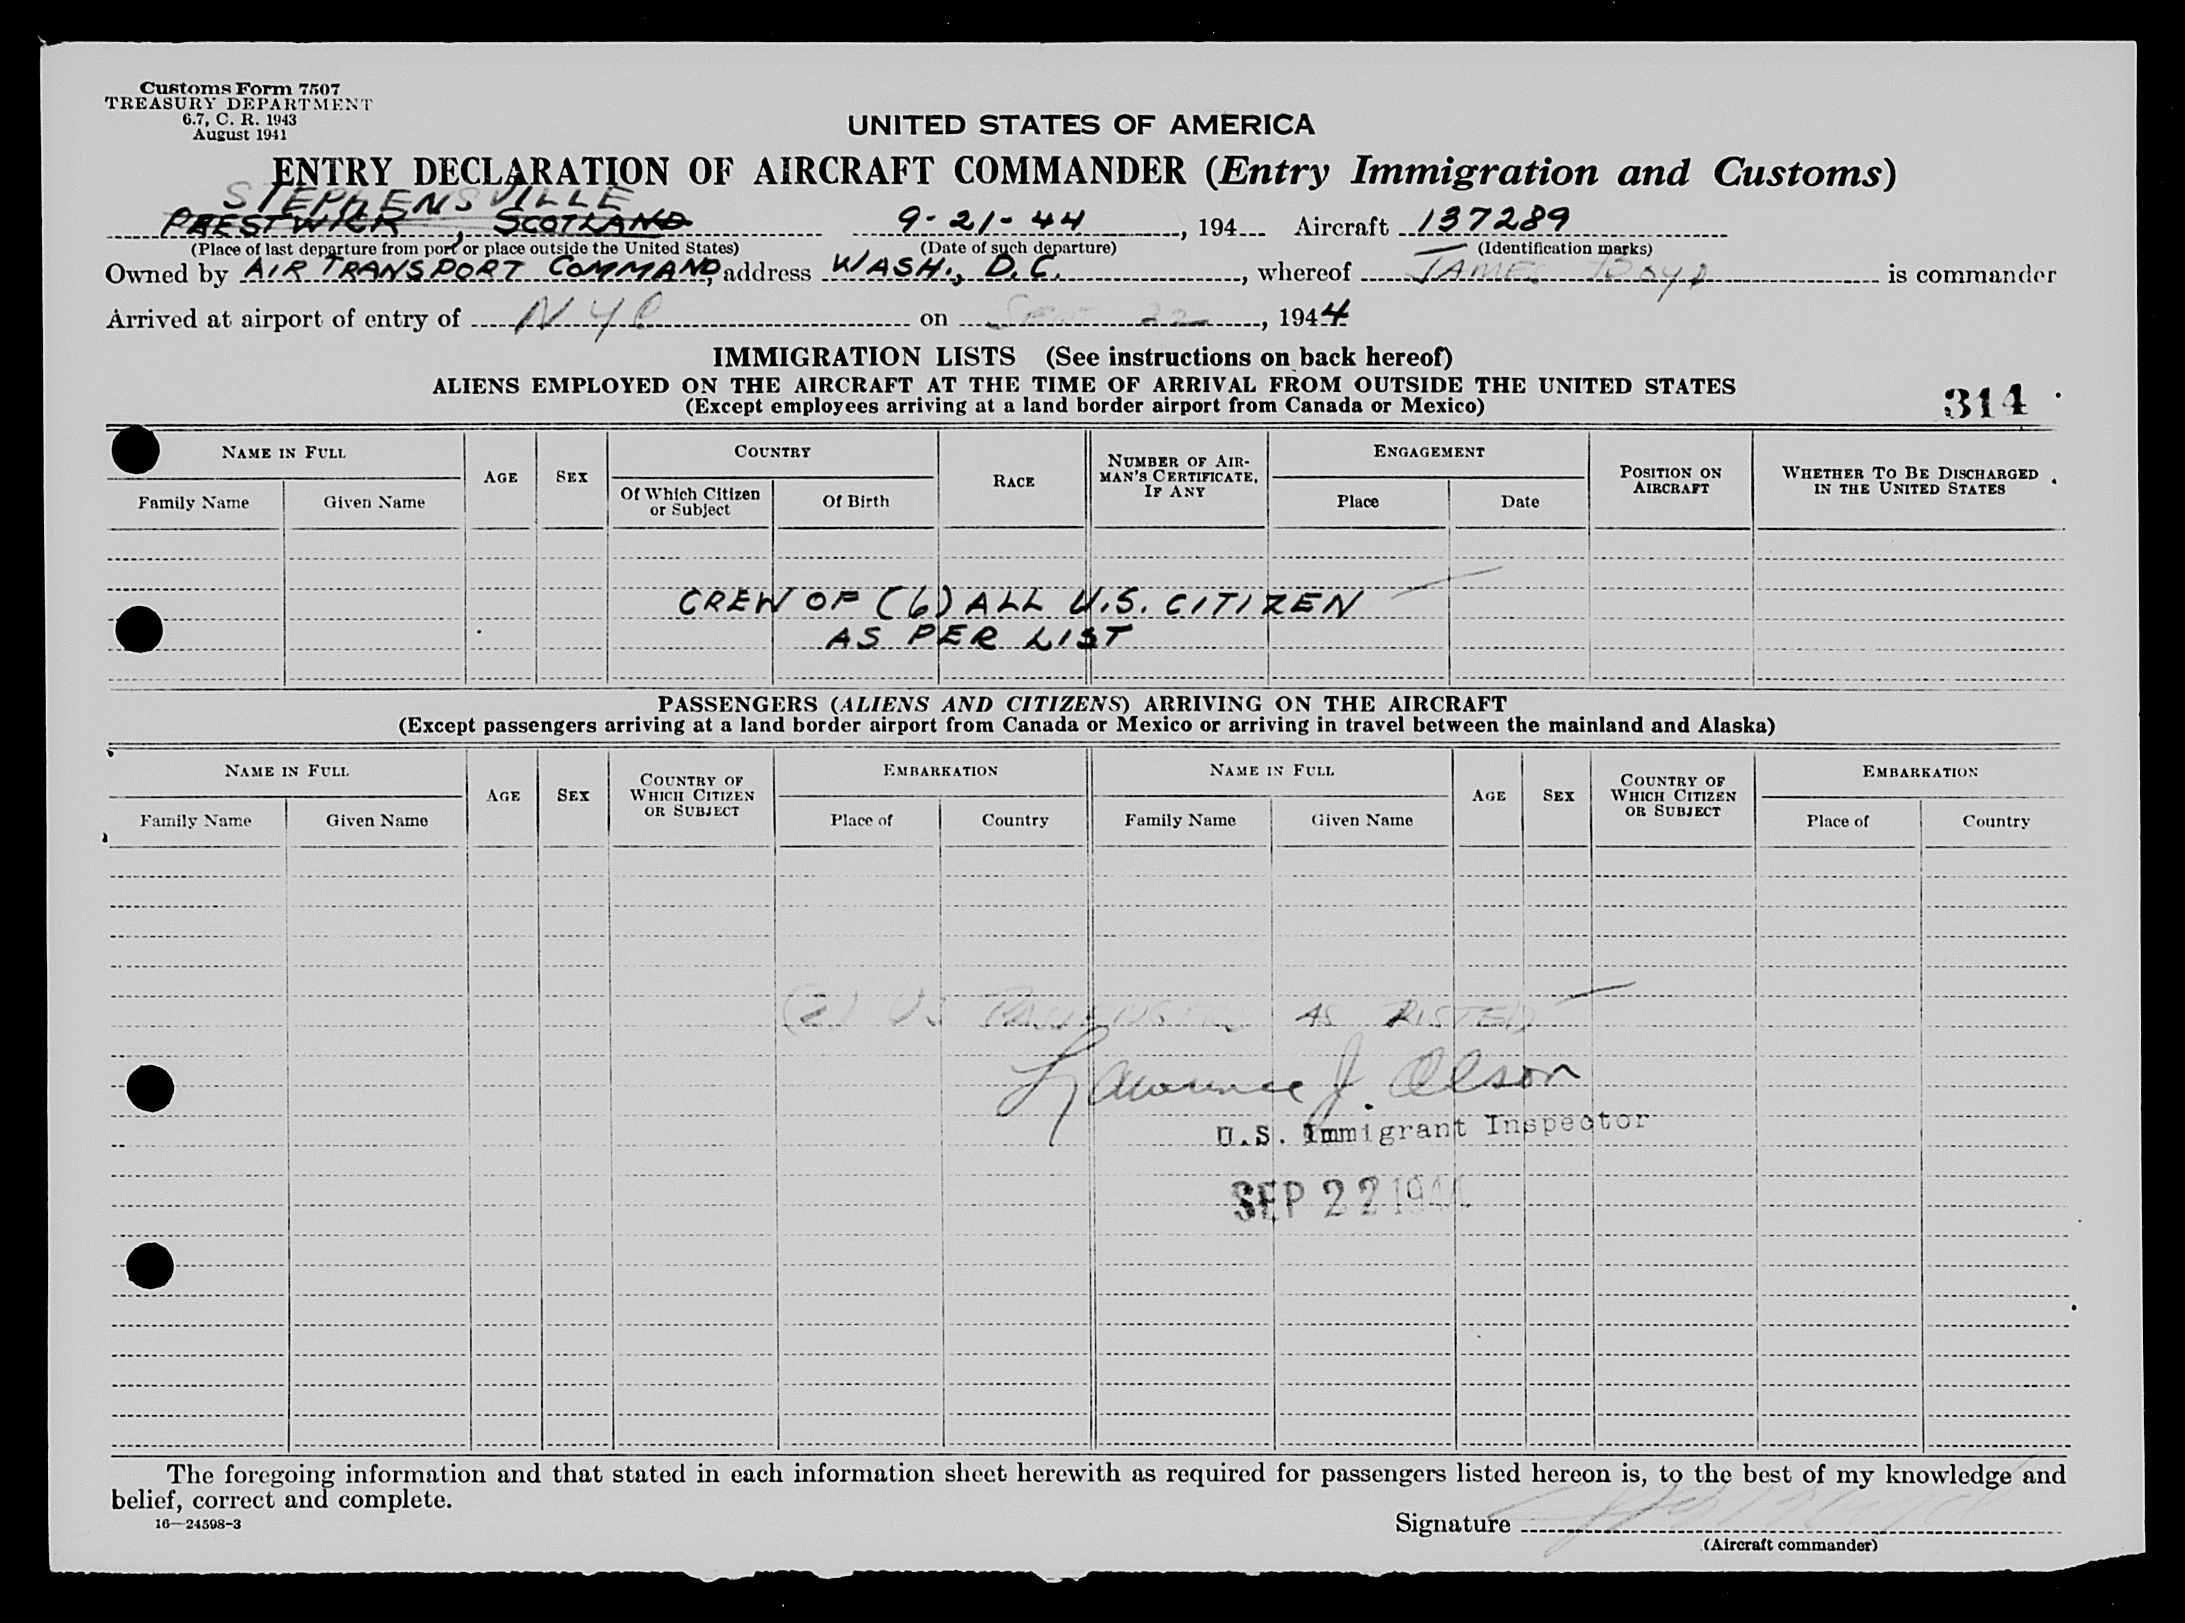 Customs Form 7507
TREASURY DEPARTMENT
6.7, C. R. 1943
August 1941
UNITED STATES OF AMERICA
ENTRY DECLARATION OF AIRCRAFT COMMANDER (Entry Immigration and Customs)
STEPHENSVILLE
PRESTWICK, SCOTLAND 9-21-44, 194 Aircraft 137289
(Place of last departure from port or place outside the United States) (Date of such departure) (Identification marks)
Owned by AIR TRANSPORT COMMAND, address WASH., D.C., whereof JAMES Boyd is commander
Arrived at airport of entry of NYC on SEPT 22, 1944
IMMIGRATION LISTS (See instructions on back hereof)
ALIENS EMPLOYED ON THE AIRCRAFT AT THE TIME OF ARRIVAL FROM OUTSIDE THE UNITED STATES
(Except employees arriving at a land border airport from Canada or Mexico)
314
NAME IN FULL AGE SEX COUNTRY RACE NUMBER OF AIRMAN'S CERTIFICATE, IF ANY ENGAGEMENT POSITION ON AIRCRAFT WHETHER TO BE DISCHARGED IN THE UNITED STATES
Family Name Given Name Of Which Citizen or Subject Of Birth Place Date
CREW OF (6) ALL U.S. CITIZEN
AS PER LIST
PASSENGERS (ALIENS AND CITIZENS) ARRIVING ON THE AIRCRAFT
(Except passengers arriving at a land border airport from Canada or Mexico or arriving in travel between the mainland and Alaska)
NAME IN FULL AGE SEX COUNTRY OF WHICH CITIZEN OR SUBJECT EMBARKATION NAME IN FULL AGE SEX COUNTRY OF WHICH CITIZEN OR SUBJECT EMBARKATION
Family Name Given Name Place of Country Family Name Given Name Place of Country
(2) US AS LISTED
Lawrence J. Olson
U.S. Immigrant Inspector
SEP 22 1944
The foregoing information and that stated in each information sheet herewith as required for passengers listed hereon is, to the best of my knowledge and
belief, correct and complete.
16—24598-3
Signature
(Aircraft commander)